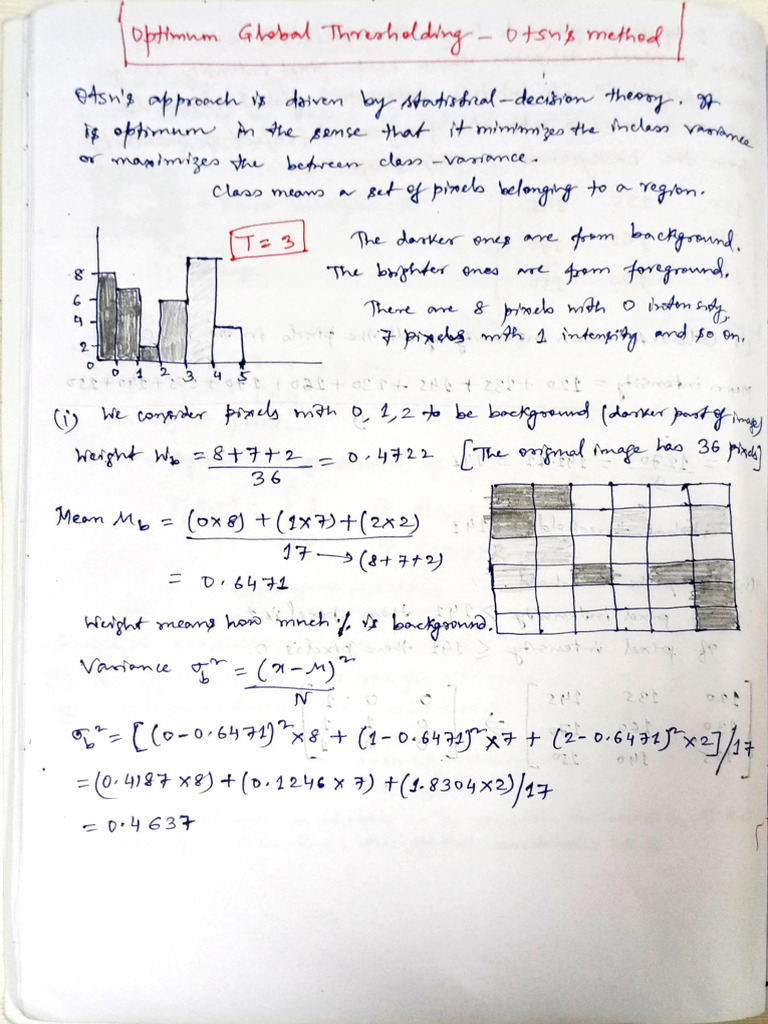 Optimum Global Thresholding - Otsu's method
Otsu's approach is driven by statistical-decision theory. It
is optimum in the sense that it minimizes the inclass variance
or maximizes the between class-variance.
Class means a set of pixels belonging to a region.
T = 3
The darker ones are from background.
The brighter ones are from foreground.
There are 8 pixels with 0 intensity,
7 pixels with 1 intensity and so on.
8
6
4
2
0
0 1 2 3 4 5
(i) We consider pixels with 0, 1, 2 to be background (darker part of image)
Weight Wb = 8+7+2 / 36 = 0.4722 [The original image has 36 pixels]
Mean Mb = (0x8) + (1x7) + (2x2) / 17 → (8+7+2)
= 0.6471
Weight means how much % is background.
Variance σb² = (x-μ)² / N
σb² = [(0-0.6471)² x 8 + (1-0.6471)² x 7 + (2-0.6471)² x 2] / 17
= (0.4187 x 8) + (0.1246 x 7) + (1.8304 x 2) / 17
= 0.4637